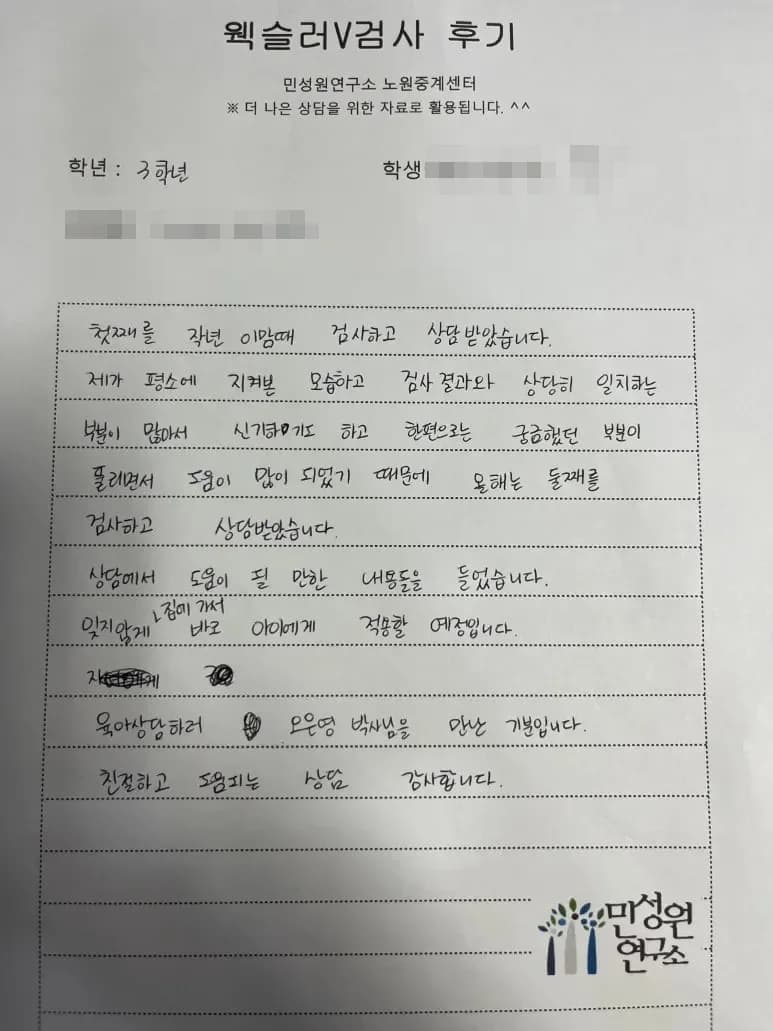 웩슬러V검사 후기
민성원연구소 노원중계센터
※ 더 나은 상담을 위한 자료로 활용됩니다. ^^
학년 : 3학년 학생
첫째를 작년 이맘때 검사하고 상담받았습니다.
제가 평소에 지켜본 모습하고 검사결과와 상당히 일치하는
부분이 많아서 신기하기도 하고 한편으로는 궁금했던 부분이
풀리면서 도움이 많이 되었기 때문에 올해는 둘째를
검사하고 상담받았습니다.
상담에서 도움이 될 만한 내용들을 들었습니다.
집에 가서
잊지않게 바로 아이에게 적용할 예정입니다.
육아상담하러 오은영 박사님을 만난 기분입니다.
친절하고 도움되는 상담 감사합니다.
민성원
연구소